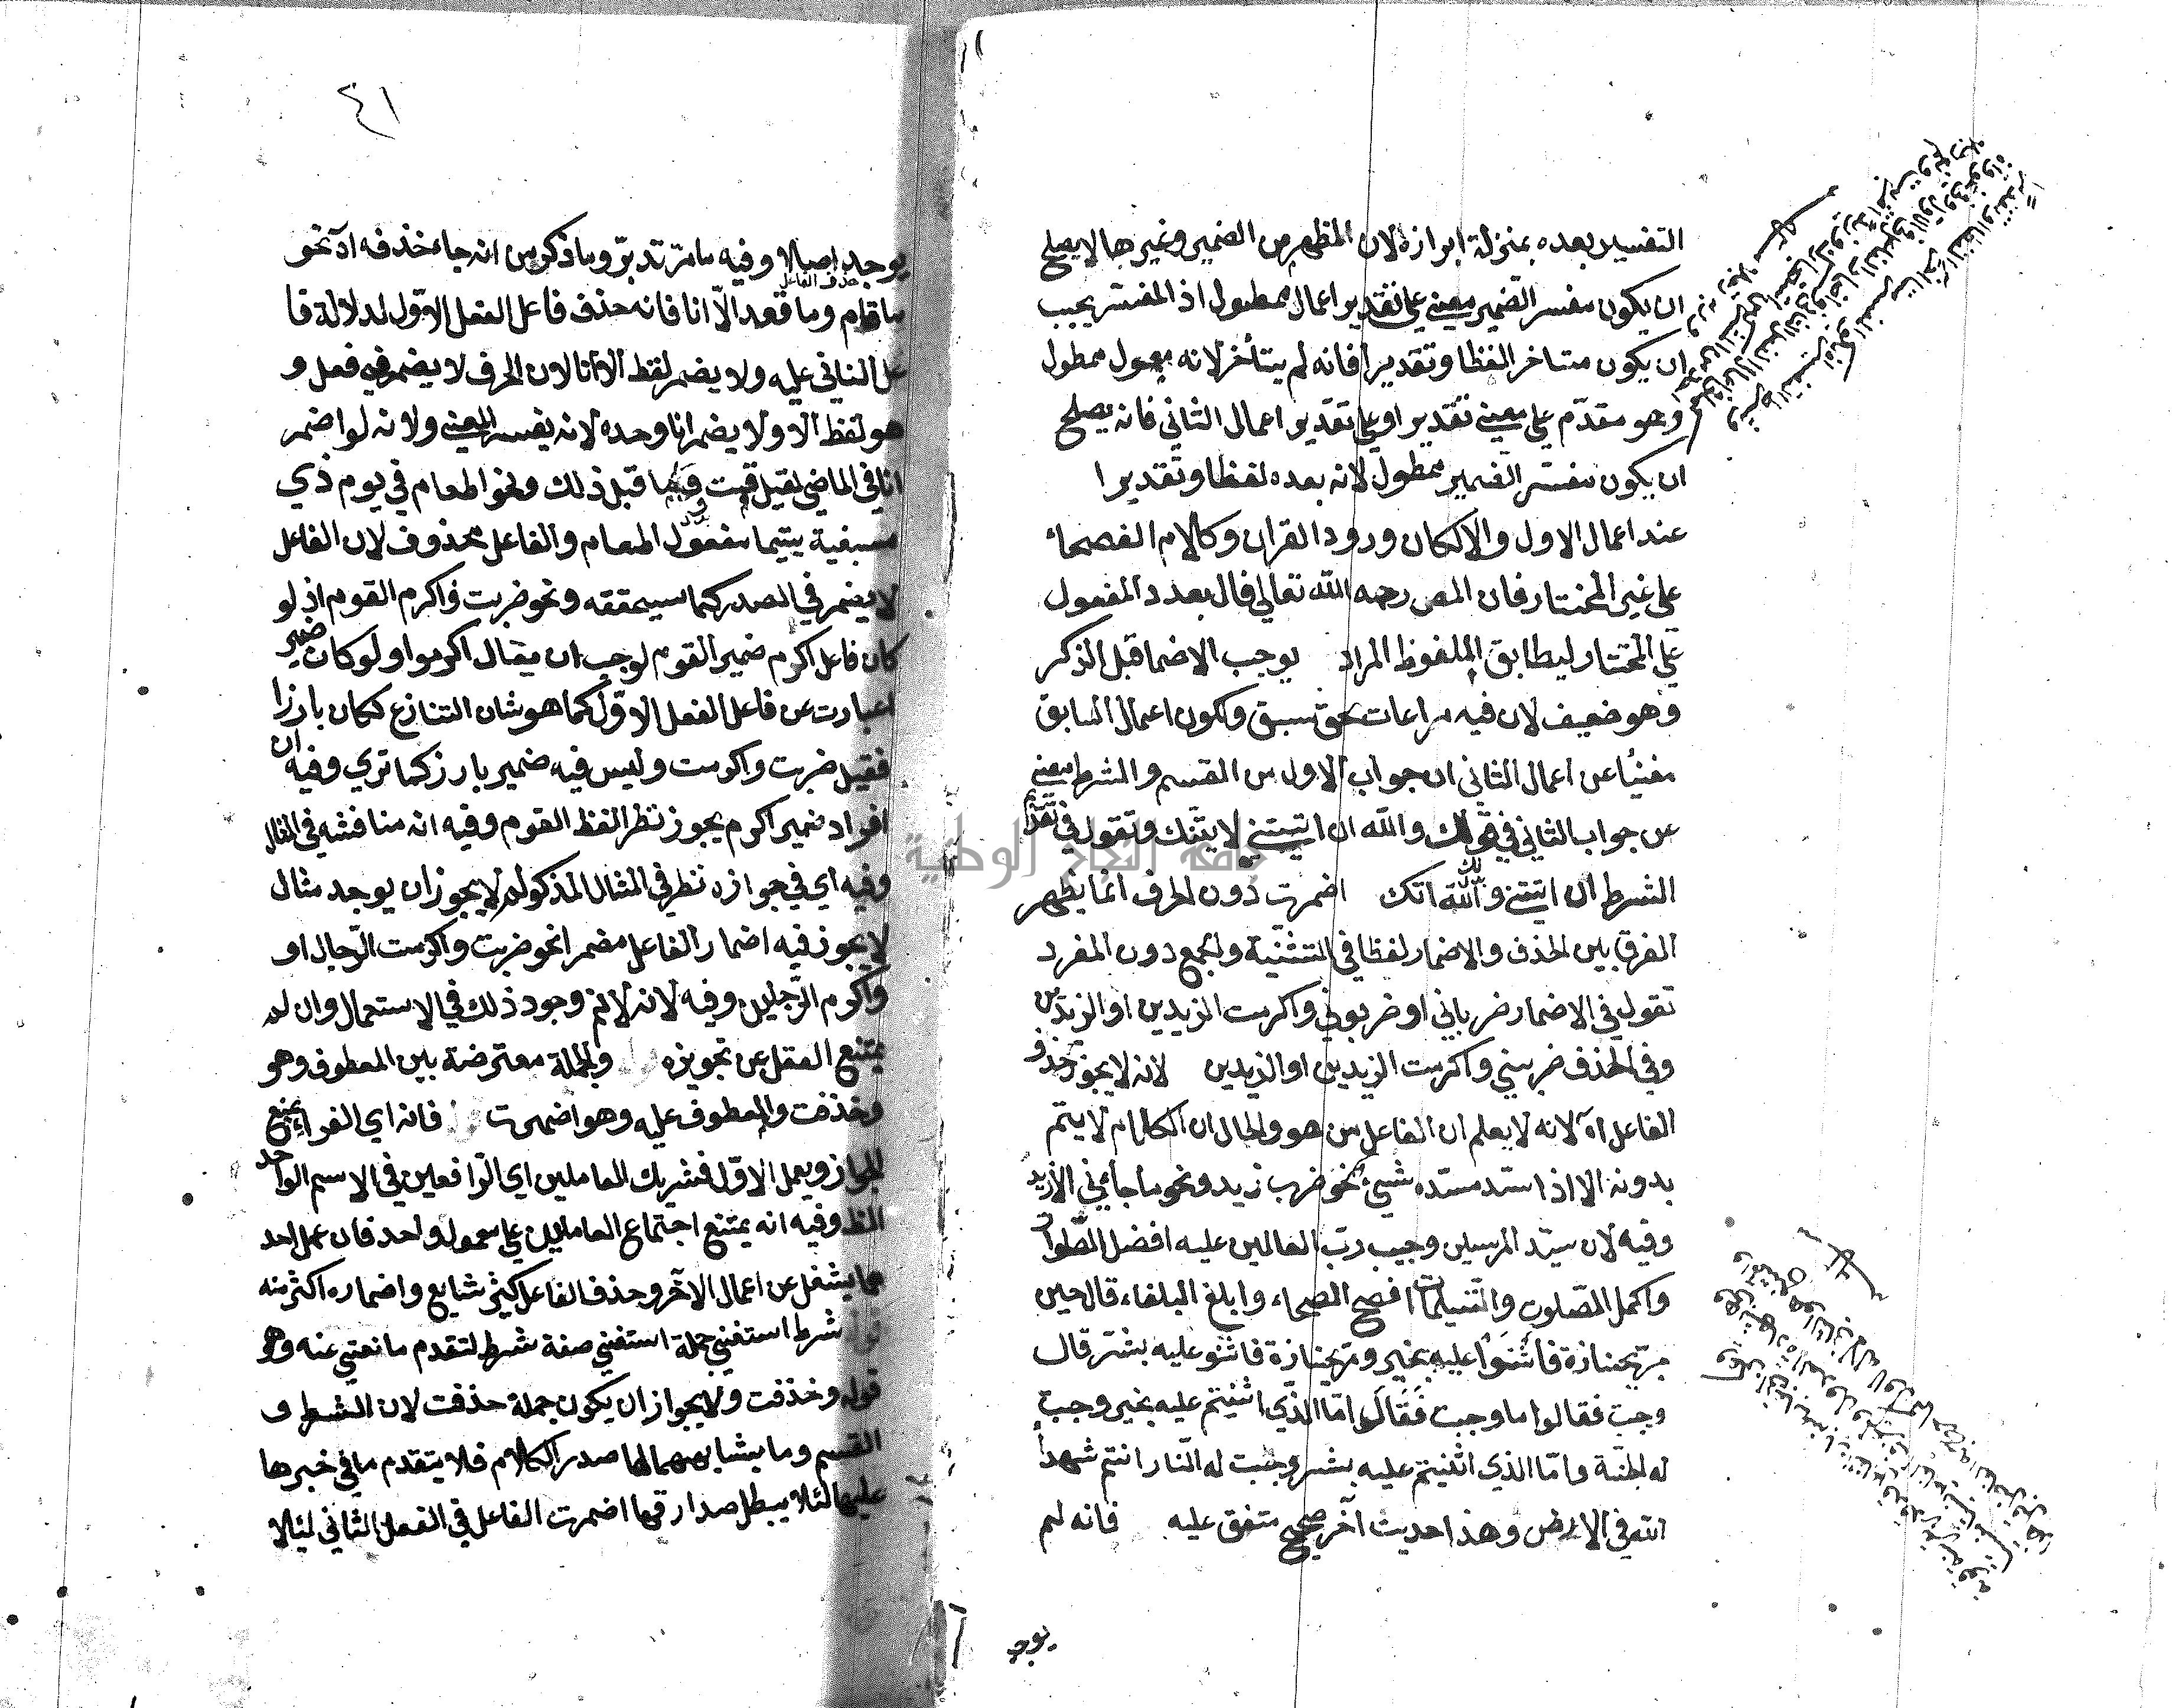 التفسير بعده بمنزلة ابرازه لان المظهر من الضمير وغيرها لا يصلح
ان يكون مفسر الضمير معنى على تقدير اعمال ممطول اذ المفسر يجب
ان يكون متاخرا لفظا وتقديرا فانه لم يتأخر لانه معمول ممطول
وهو مقدم على معنى تقديرا وعلى تقدير اعمال الثاني فانه يصلح
ان يكون مفسر الضمير ممطول لانه بعده لفظا وتقديرا
عند اعمال الاول والا لكان ورود القران وكلام الفصحاء
على غير المختار فان المص رحمه الله تعالى قال بعد د المفعول
على المختار ليطابق الملفوظ المراد يوجب الاضما قبل الذكر
وهو ضعيف لان فيه مراعات حق سبق وكون اعمال السابق
مغنيا عن اعمال الثاني ان جواب الاول من القسم والشرط معنى
عن جواب الثاني في قولك والله ان اتيتني لايتنك وتقول في تقدم
الشرط ان اتيتني والله اتك اضمرت دون الحرف انما يظهر
الفرق بين الحذف والاضمار لفظا في التثنية والجمع دون المفرد
تقول في الاضمار ضرباني او ضربوني واكرمت الزيدين او الزيدين
وفي الحذف ضربني واكرمت الزيدين او الزيدين لانه لا يجوز حذف
الفاعل اه لانه لا يعلم ان الفاعل من هو والحال ان الكلام لا يتم
بدونه الا اذا سد مسده شيئ نحو ضرب زيد ونحو ما جاءني الا زيد
وفيه لان سيد المرسلين وحبيب رب العالمين عليه افضل الصلوات
واكمل المصلون والتسليمات افصح الفصحاء وابلغ البلغاء قال حين
مر بجنازة فأثنوا عليه بخير ومر بجنازة فاثنو عليه بشر قال
وجبت فقالوا ما وجبت فقال اما الذي اثنيتم عليه بخير وجبت
له الجنة واما الذي اثنيتم عليه بشر وجبت له النار انتم شهدأ
الله في الارض وهذا حديث آخر صحيح متفق عليه فانه لم
يوجد
جامعة النجاح الوطنية
٤١
يوجد اصلا وفيه ما مر تدبر وما ذكر من انه جاء حذفه اه نحو
حذف الفاعل
ما قام وما قعد الا انا فانه حذف فاعل الفعل الاول لدلالة فا
عل الثاني عليه ولا يضمر لفظ الا انا لان الحرف لا يضمر في فعل و
هو لفظ الا ولا يضمر انا وحده لانه يفسد المعنى ولانه لو اضمر
انا في الماضي لقيل قمت وما قبل ذلك ونحو اطعام في يوم ذي
مسبغية يتيما مفعول اطعام والفاعل محذوف لان الفاعل
لا يضمر في المصدر كما سيحققه ونحو ضربت واكرم القوم اذ لو
كان فاعل اكرم ضمير القوم لوجب ان يقال اكرموا ولو كان ضمير
عبارت عن فاعل الفعل الاول كما هو شان التنازع لكان بارزا
فقيل ضربت واكرمت وليس فيه ضمير بارز كما ترى وفيه ان
افراد ضمير اكرم يجوز نظرا لفظ القوم وفيه انه مناقشه في المثال
وفيه اي في جوازه نظر في المثال المذكور لم لا يجوز ان يوجد مثال
لا يجوز فيه اضمار الفاعل مضمرا نحو ضربت واكرمت الرجال او
واكرم الرجلين وفيه لانه لا نم وجود ذلك في الاستعمال وان لم
يمتنع العقل عن تجويزه والجملة معترضة بين المعطوف وهو
وحذفت والمعطوف عليه وهو اضمرت فانه اي الفراء يمنع
الجواز ويعمل الاول فتشريك العاملين اي الرافعين في الاسم الواحد
الظ وفيه انه يمتنع اجتماع العاملين على معمول واحد فان عمل احد
هما يشغل عن اعمال الآخر وحذف الفاعل كثير شايع واضماره اكثر منه
شرط استغني جملة استغني صفة شرط لتقدم ما تغني عنه وهو
قوله وحذفت ولا يجواز ان يكون جملة حذفت لان الشرط و
القسم وما يشابههما لها صدر الكلام فلا يتقدم ما في خبرها
عليها لئلا يبطل صدارتها اضمرت الفاعل في الفعل الثاني لئلا